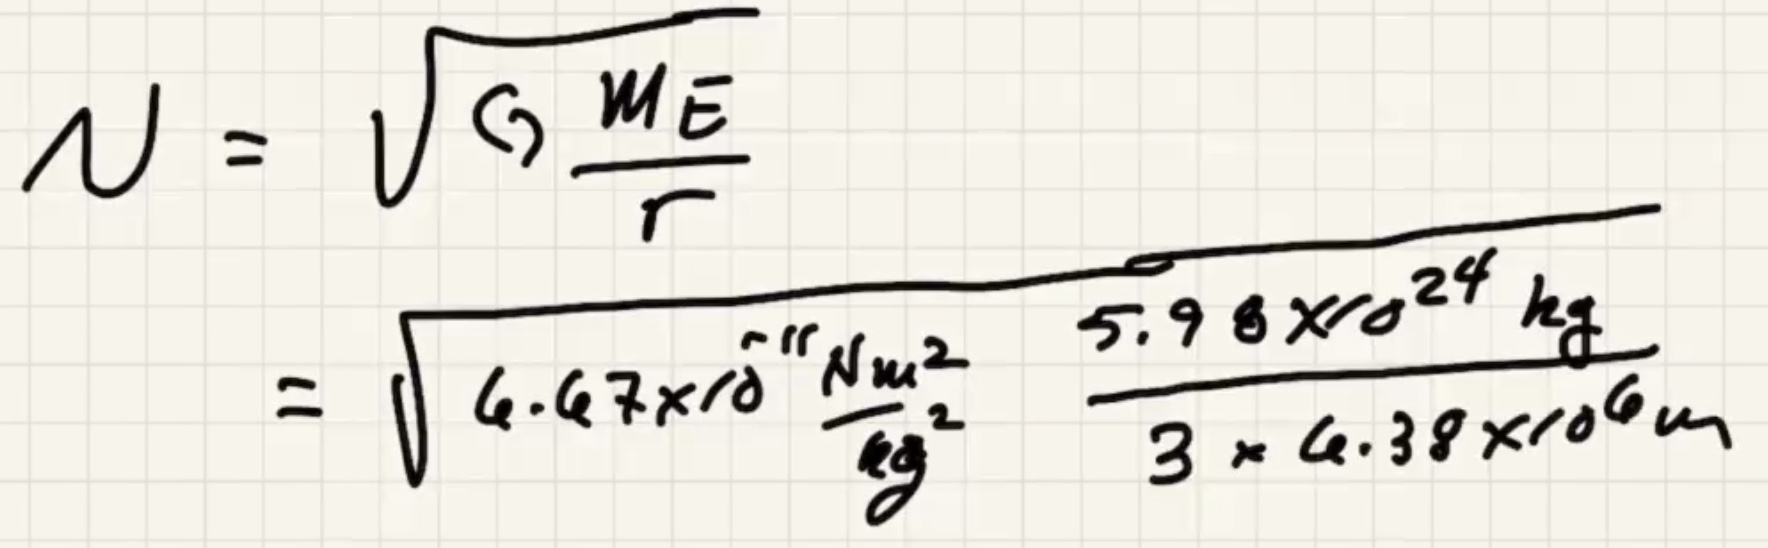 v = √(G mE / r)
= √(6.67×10⁻¹¹ Nm²/kg² 5.98×10²⁴ kg / 3 × 6.38×10⁶ m)